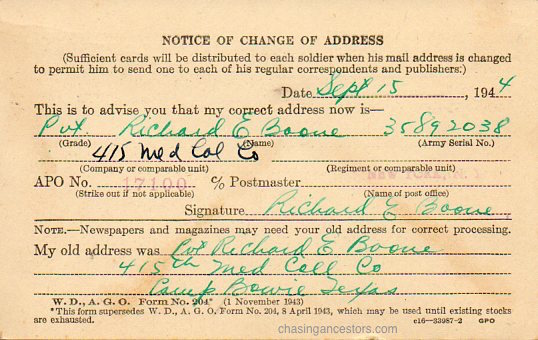 NOTICE OF CHANGE OF ADDRESS
(Sufficient cards will be distributed to each soldier when his mail address is changed
to permit him to send one to each of his regular correspondents and publishers.)
Date Sept 15, 1944
This is to advise you that my correct address now is—
Pvt. Richard E Boone 35892038
(Grade) (Name) (Army Serial No.)
415 Med Col Co
(Company or comparable unit) (Regiment or comparable unit)
APO No. 17100 c/o Postmaster NEW YORK, N. Y.
(Strike out if not applicable) (Name of post office)
Signature Richard E Boone
NOTE.—Newspapers and magazines may need your old address for correct processing.
My old address was Pvt Richard E Boone
415th Med Coll Co
Camp Bowie Texas
W. D., A. G. O. Form No. 204* (1 November 1943)
*This form supersedes W. D., A. G. O. Form No. 204, 8 April 1943, which may be used until existing stocks
are exhausted. c16—33987-2 GPO
chasingancestors.com